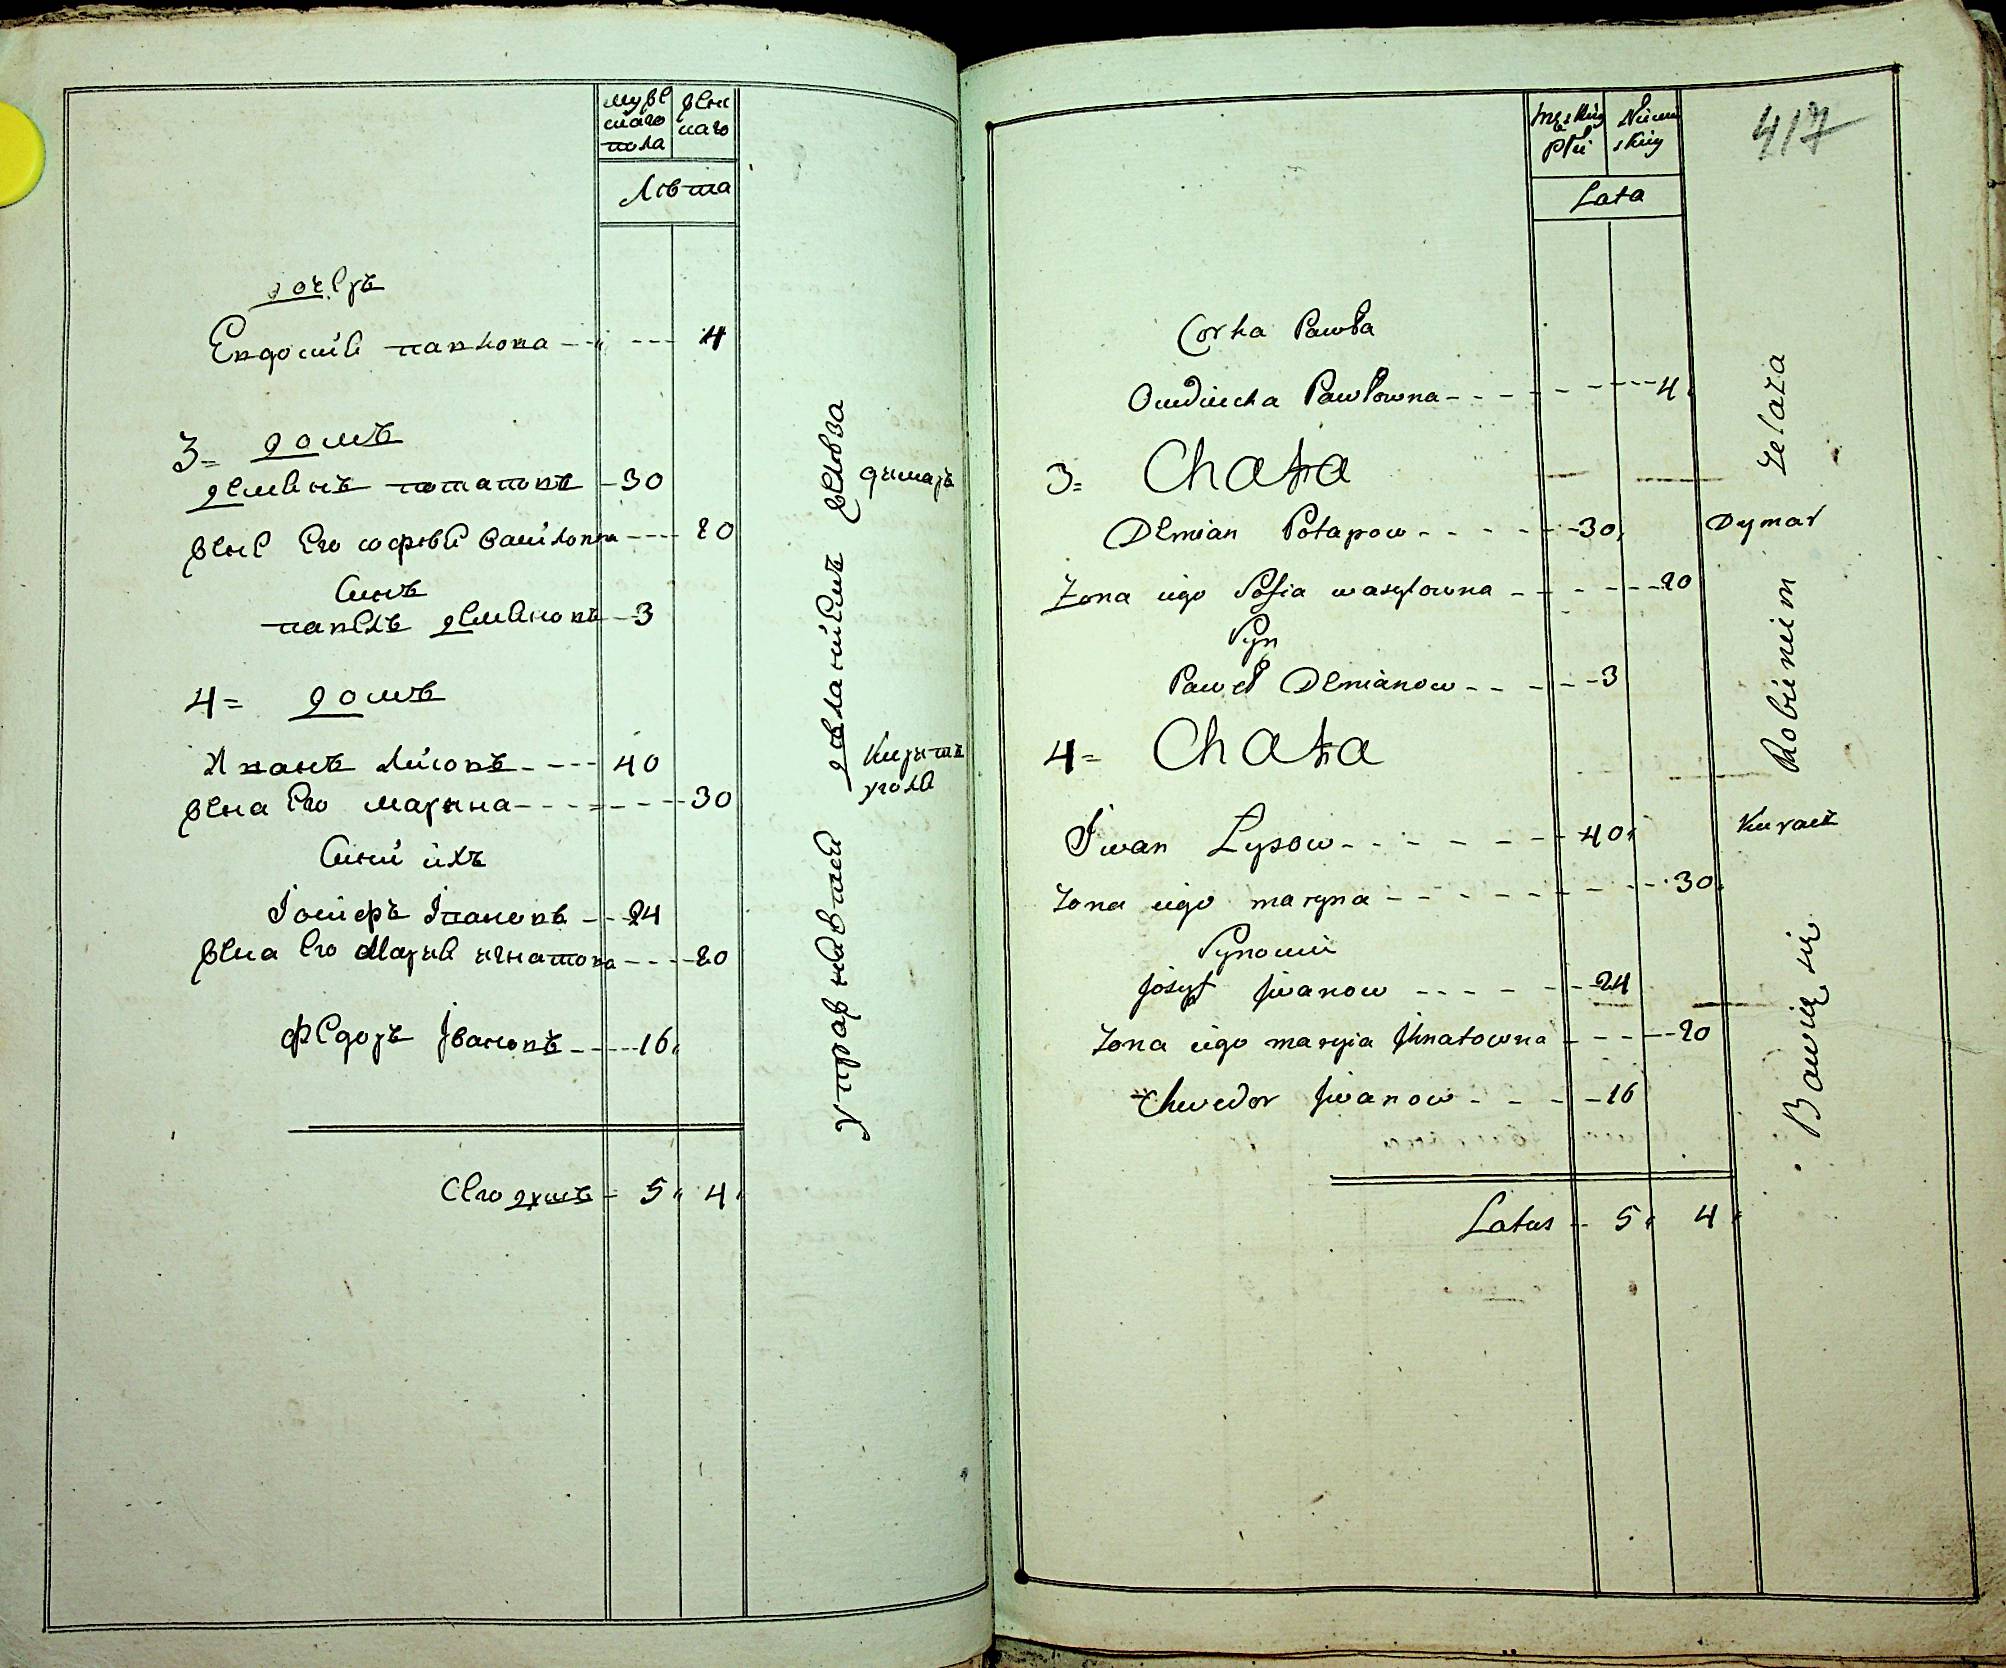 мужескаго пола
женскаго
лѣта
дочерь
Евдокия павлова 4
3= домъ
демянъ потаповъ 30
жена его софія василовна 20
Синъ
павелъ демяновъ 3
4= домъ
Иванъ Лисовъ 40
жена его марина 30
Сини ихъ
Іосифъ Івановъ 24
жена его Марія игнатова 20
Федоръ Івановъ 16
Сего душъ 5 4
упражнавшей дѣланіемъ желѣза
дымаръ
Куритъ
уголя
417
Męskiey Płci
Niewieskiey
Lata
Corka Pawła
Owdiucha Pawłowna 4
3= Chata
Demian Potapow 30
Żona iego Sofia wasylowna 20
Syn
Paweł Demianow 3
4= Chata
Iwan Łysow 40
Żona iego maryna 30
Synowie
Josyf Jwanow 24
Żona iego maryia Jhnatowna 20
Chwedor Jwanow 16
Latus 5 4
Bawią się Robieniem żelaza
Dymar
Kuracz